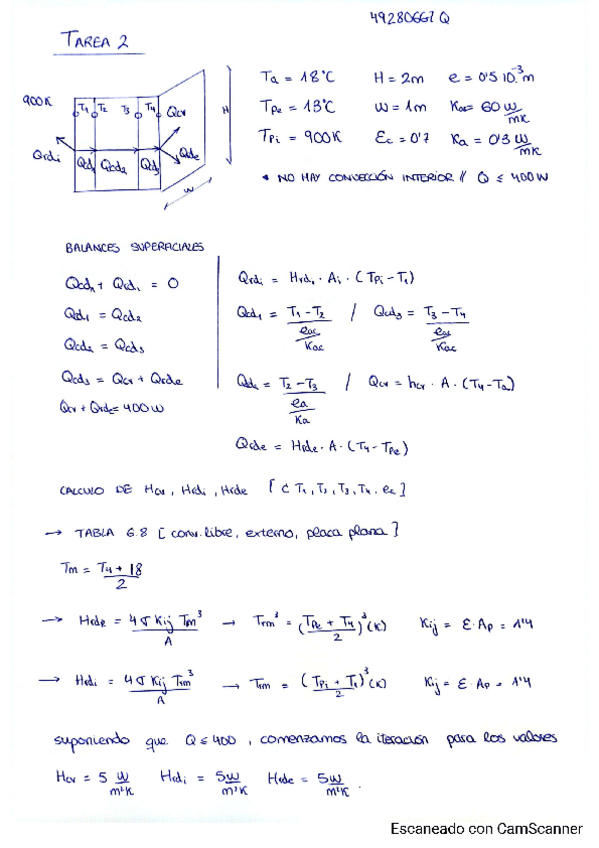 49280667 Q
TAREA 2
Ta = 18°C   H = 2m   e = 0'5 10⁻³ m
Tpe = 13°C   W = 1m   Kac = 60 W/mK
Tpi = 900K   Ec = 0'7   Ka = 0'3 W/mK
* NO HAY CONVECCIÓN INTERIOR // Q ≤ 400W
900K   T1 T2 T3 T4 Qcv   H
Qrdi   Qcd1 Qcd2 Qcd3 Qrde
W
BALANCES SUPERFICIALES
Qcd1 + Qrdi = 0
Qcd1 = Qcd2
Qcd2 = Qcd3
Qcd3 = Qcv + Qrde
Qcv + Qrde = 400W
Qrdi = Hrdi · Ai · (Tpi - T1)
Qcd1 = (T1 - T2) / (eac / Kac)   /   Qcd3 = (T3 - T4) / (eac / Kac)
Qcd2 = (T2 - T3) / (ea / Ka)   /   Qcv = hcv · A · (T4 - Ta)
Qrde = Hrde · A · (T4 - Tpe)
CALCULO DE Hcv, Hrdi, Hrde [ ¿ T1, T2, T3, T4, ea ]
→ TABLA 6.8 [ conv. libre, externo, placa plana ]
Tm = (T4 + 18) / 2
→ Hrde = 4 σ Kij Tm³ / A → Trm³ = ((Tpe + T4) / 2)³ (K)   Kij = E · Ap = 1'4
→ Hrdi = 4 σ Kij Trm³ / A → Trm = ((Tpi + T1) / 2)³ (K)   Kij = E · Ap = 1'4
suponiendo que Q ≤ 400, comenzamos la iteración para los valores
Hcv = 5 W/m²K   Hrdi = 5 W/m²K   Hrde = 5 W/m²K.
Escaneado con CamScanner